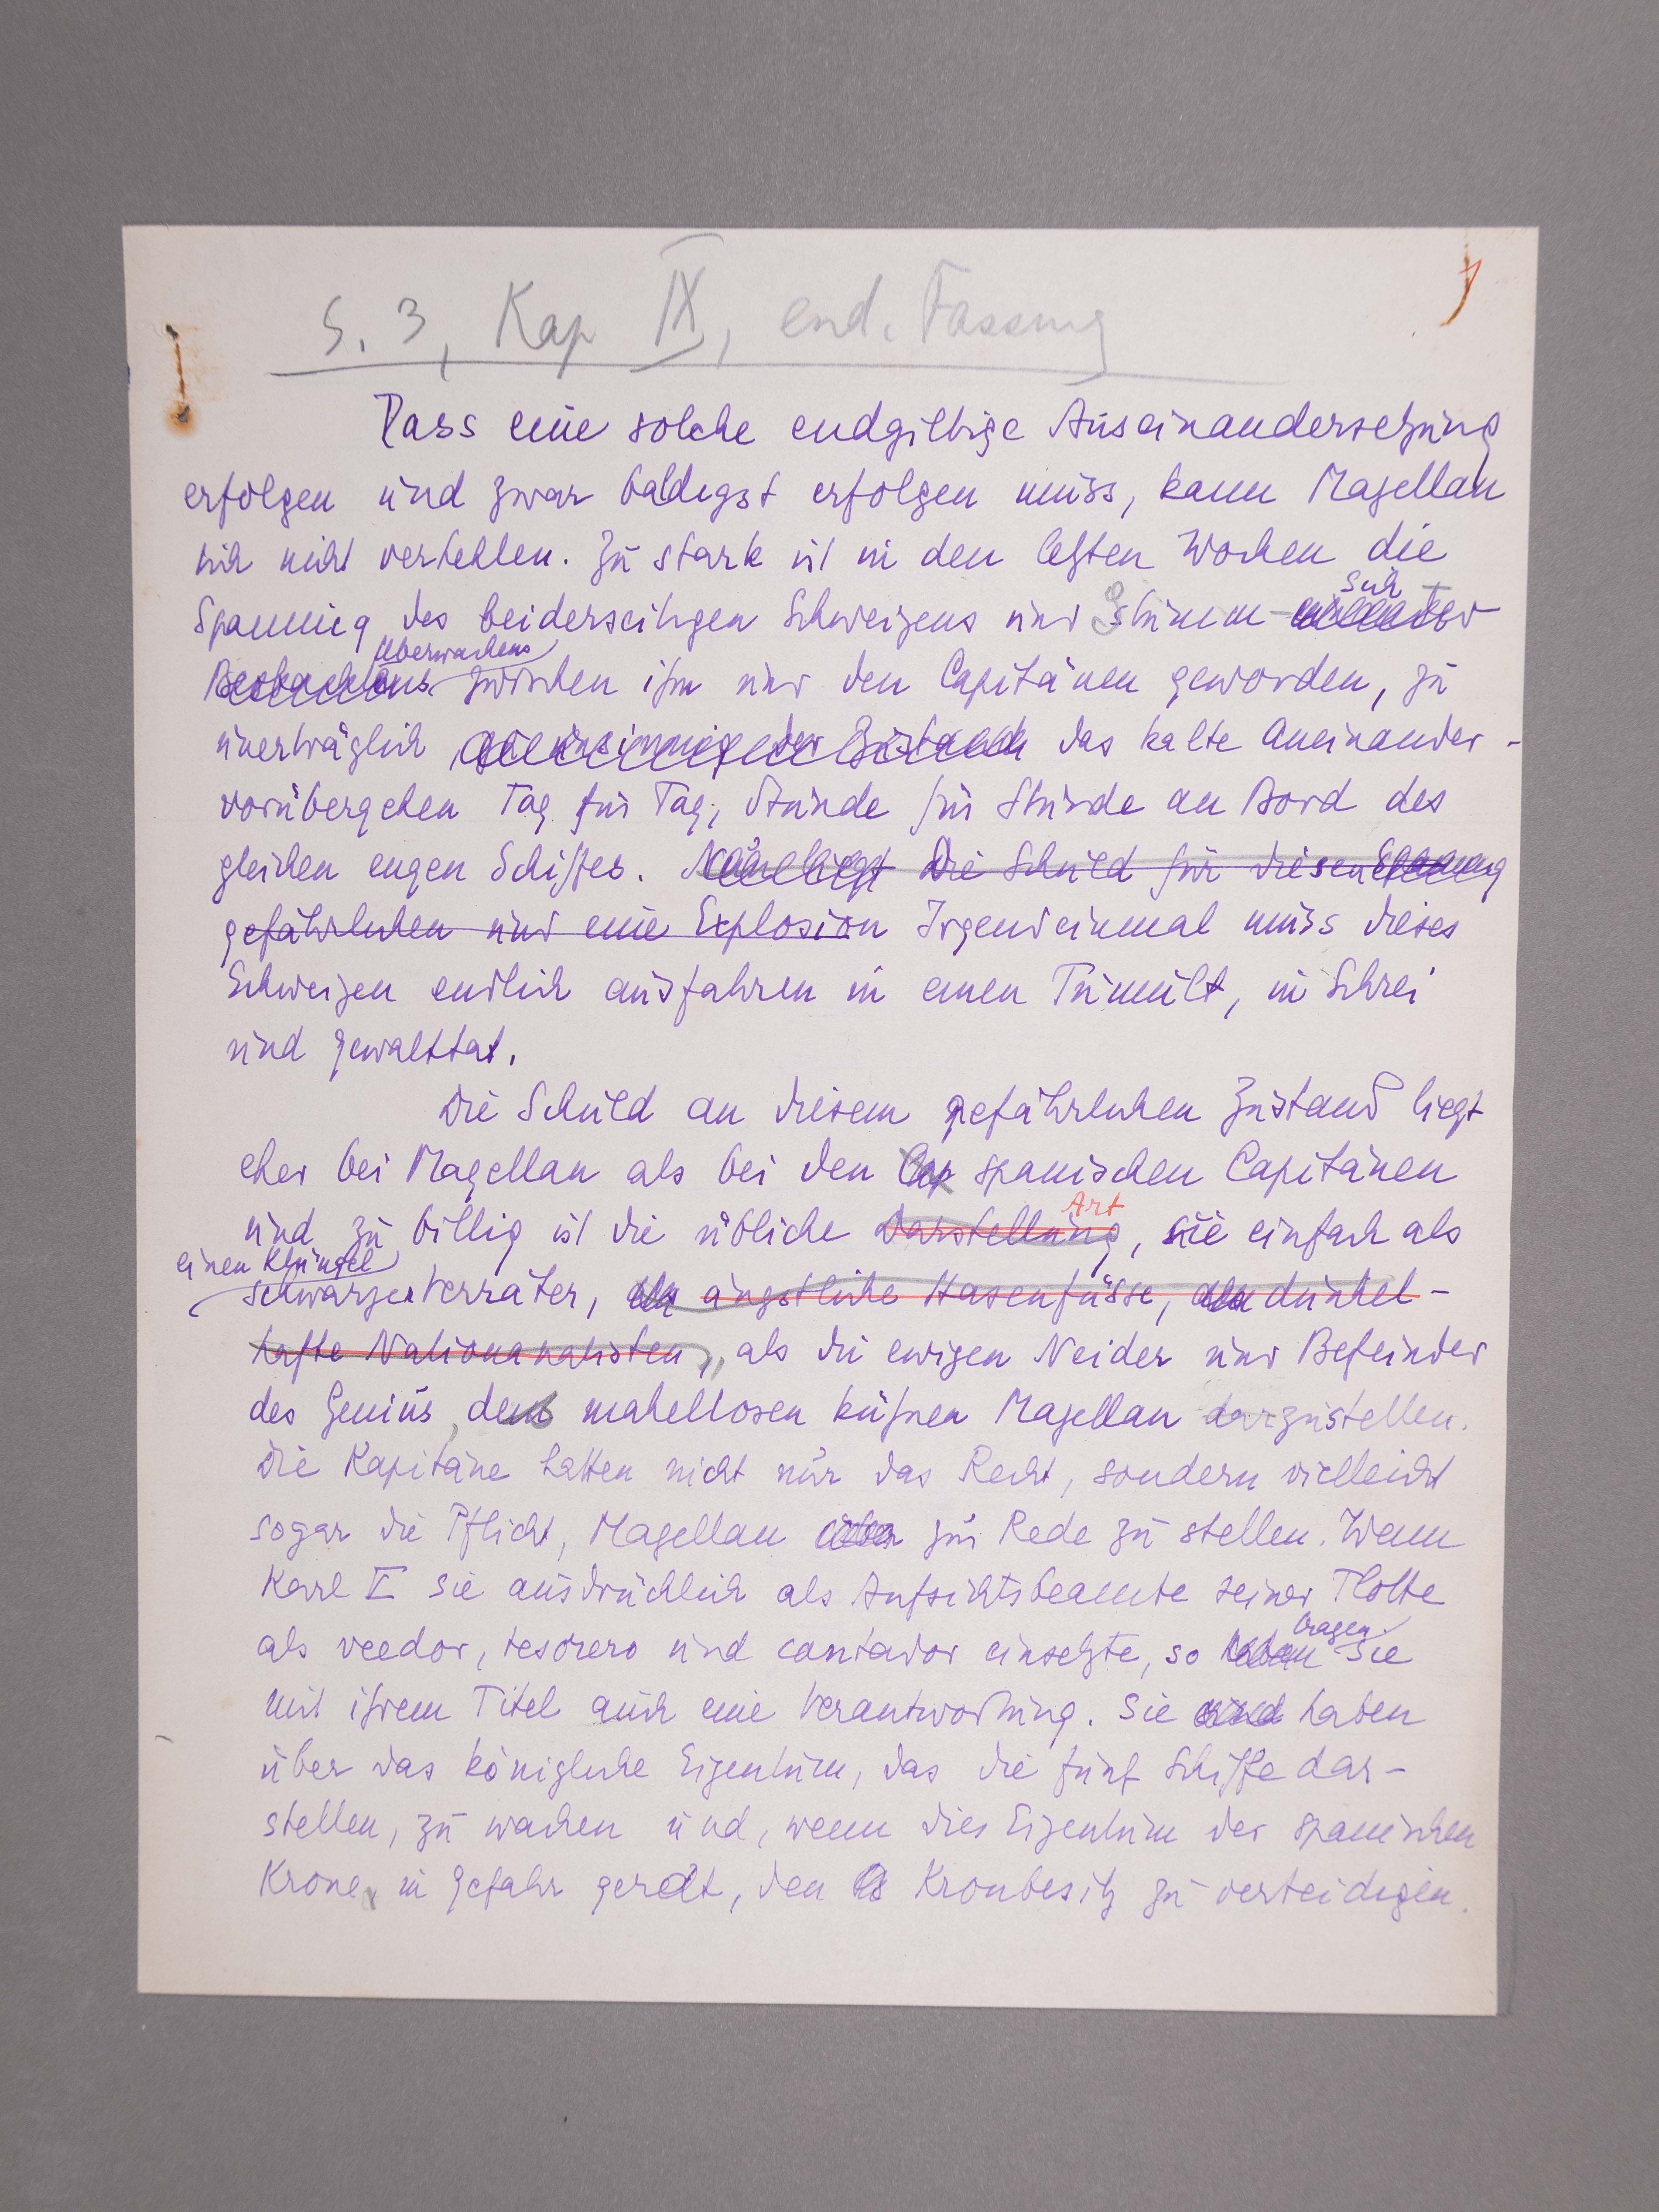 S. 3, Kap IX, end. Fassung
1
Dass eine solche endgiltige Auseinandersetzung
erfolgen und zwar baldigst erfolgen muss, kann Magellan
sich nicht verhehlen. Zu stark ist in den letzten Wochen die
Spannung des beiderseitigen Schweigens und Stumm-
Sich
Überwachens
Beobachtens zwischen ihm und den Capitänen geworden, zu
unerträglich das kalte Aneinander-
vorübergehen Tag für Tag, Stunde für Stunde an Bord des
gleichen engen Schiffes. Die Schuld für diesen Spannung
gefährlichen und eine Explosion Irgendeinmal muss dieses
Schweigen endlich ausfahren in einen Tumult, in Schrei
und Gewalttat.
Die Schuld an diesem gefährlichen Zustand liegt
eher bei Magellan als bei den Cap spanischen Capitänen
Art
und zu billig ist die übliche Darstellung, sie einfach als
einen Klüngel
schwarzer Verräter, als ängstliche Hasenfüsse, als dünkel-
hafte Nationanalisten, als die ewigen Neider und Befeinder
des Genius, den makellosen kühnen Magellan darzustellen.
Die Kapitäne hatten nicht nur das Recht, sondern vielleicht
sogar die Pflicht, Magellan zur Rede zu stellen. Wenn
Karl V sie ausdrücklich als Aufsichtsbeamte seiner Flotte
tragen
als veedor, tesorero und contador einsetzte, so haben sie
mit ihrem Titel auch eine Verantwortung. Sie sind haben
über das königliche Eigentum, das die fünf Schiffe dar-
stellen, zu wachen und, wenn dies Eigentum der spanischen
Krone in Gefahr gerät, den Kronbesitz zu verteidigen.